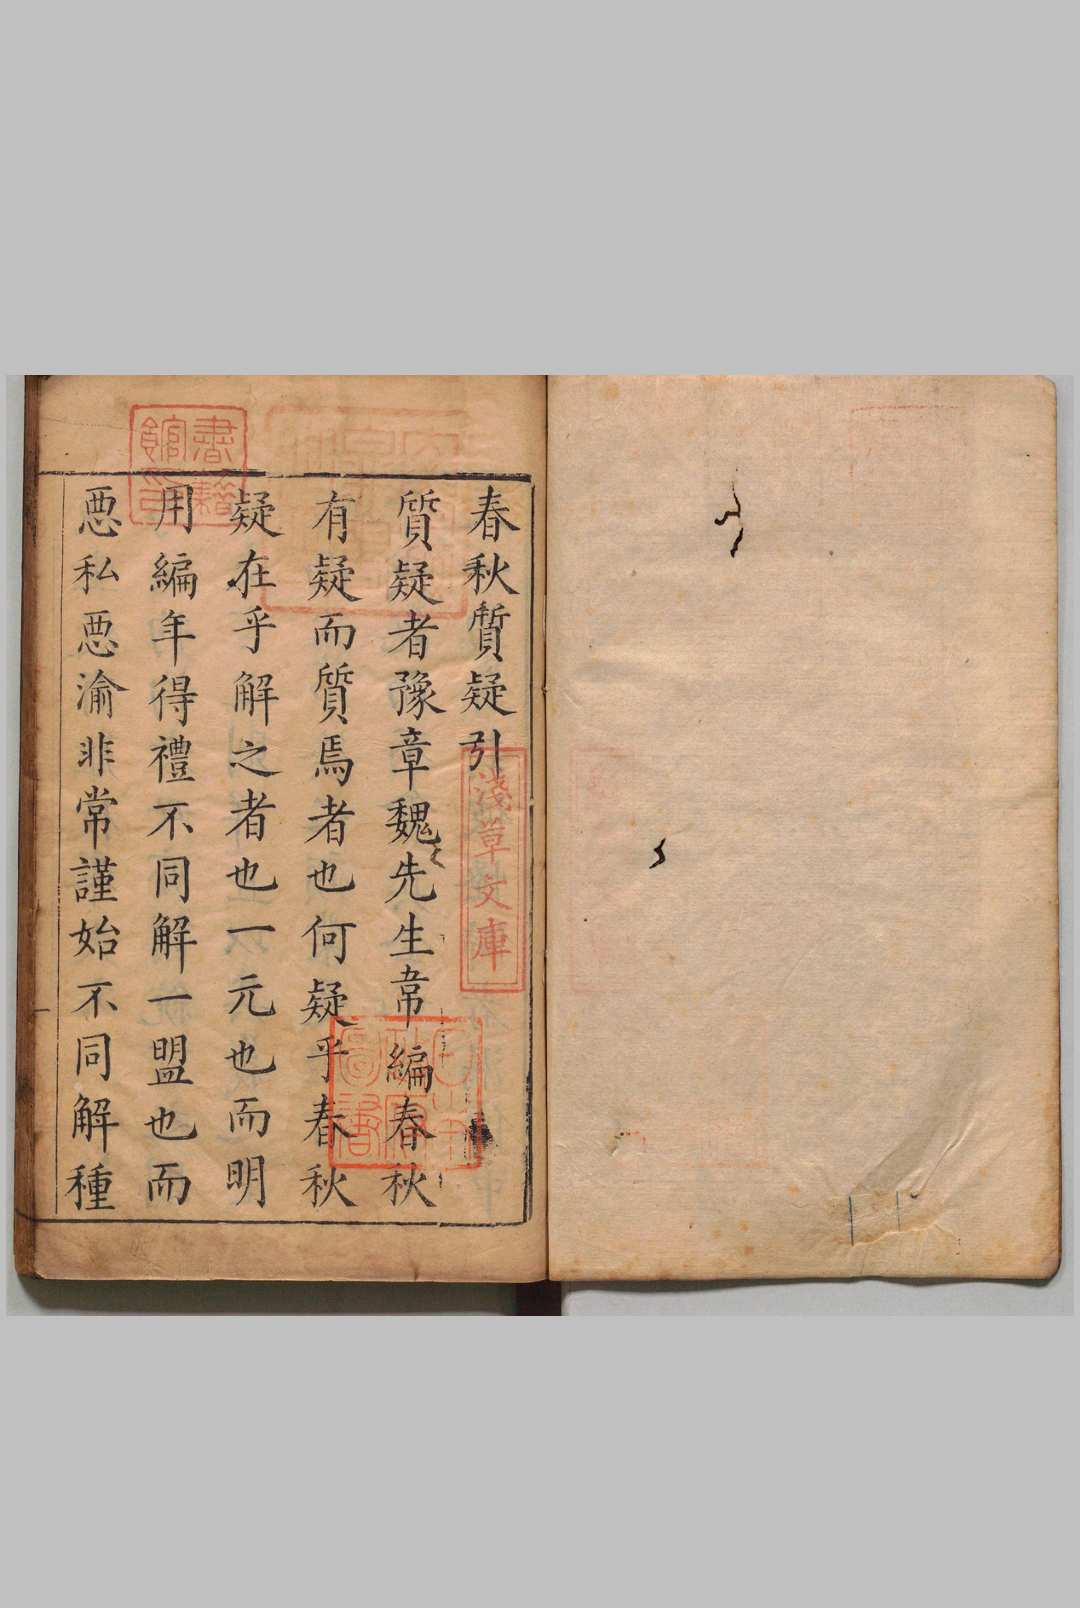 春秋質疑引
質疑者豫章魏先生韋編春秋
有疑而質焉者也何疑乎春秋
疑在乎解之者也一元也而明
用編年得禮不同解一盟也而
惡私惡渝非常謹始不同解種
淺草文庫
書籍館印
圖書